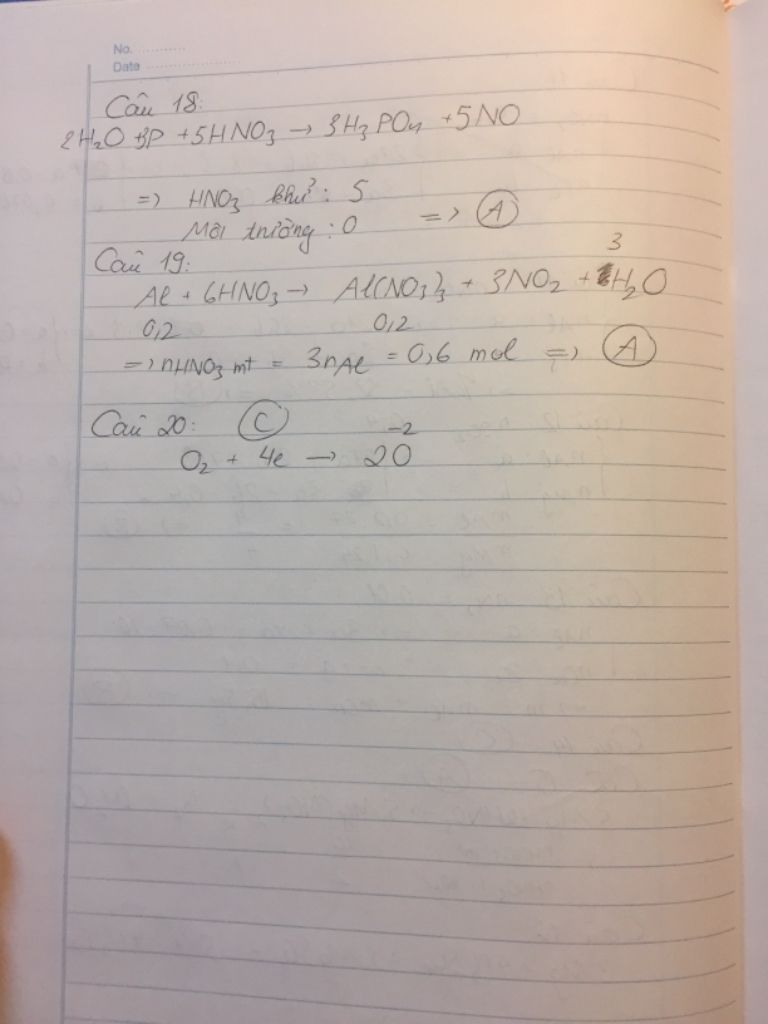 No. ............
Date ........................
Câu 18:
2H₂O + 3P + 5HNO₃ → 3H₃PO₄ + 5NO
=> HNO₃ khử: 5
Môi trường: 0 => A
Câu 19:
3
Al + 6HNO₃ → Al(NO₃)₃ + 3NO₂ + H₂O
0,2 0,2
=> nHNO₃ mt = 3nAl = 0,6 mol => A
Câu 20: C
O₂ + 4e → 2O⁻²